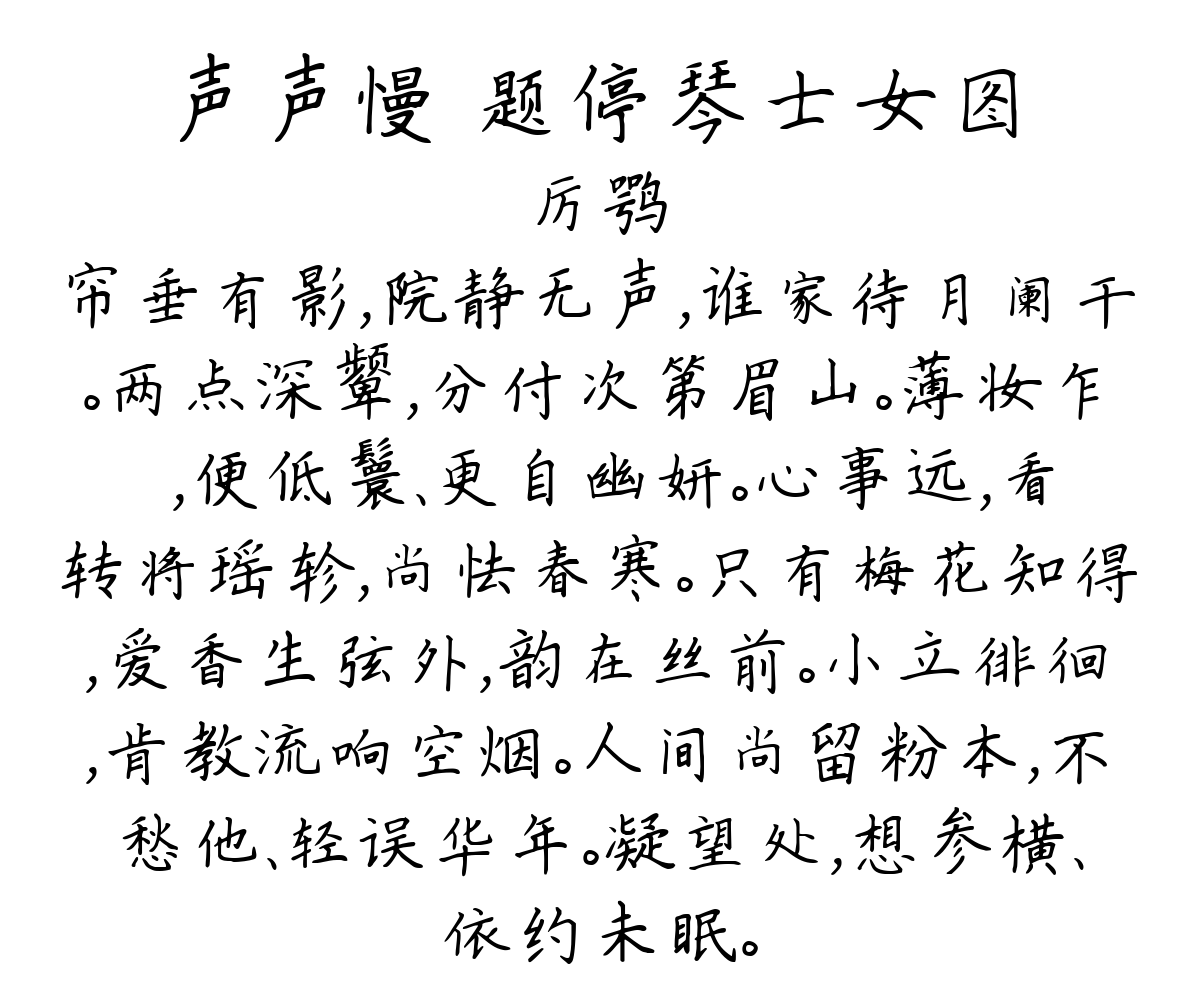 声声慢 题停琴士女图
厉鹗
帘垂有影,院静无声,谁家待月阑干
。两点深颦,分付次第眉山。薄妆乍
,便低鬟、更自幽妍。心事远,看
转将瑶轸,尚怯春寒。只有梅花知得
,爱香生弦外,韵在丝前。小立徘徊
,肯教流响空烟。人间尚留粉本,不
愁他、轻误华年。凝望处,想参横、
依约未眠。